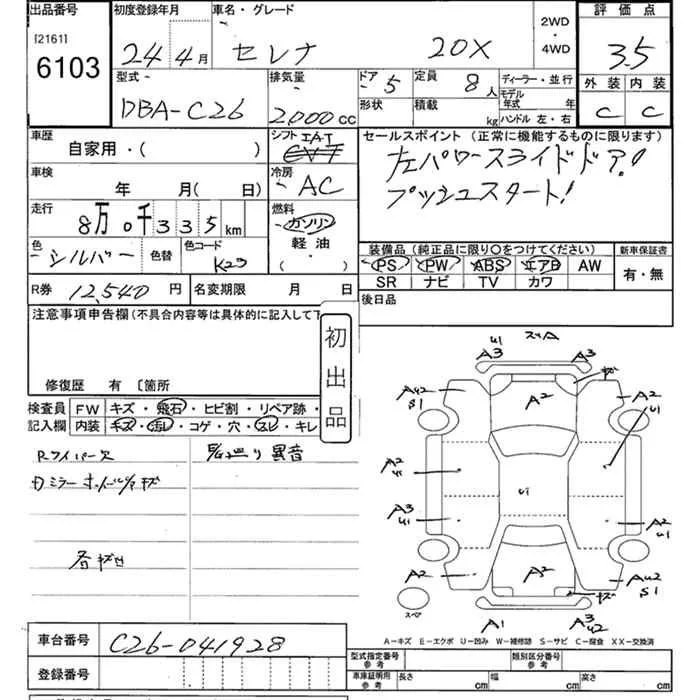 出品番号 初度登録年月 車名・グレード 2WD・4WD 評価点
[2161]
6103
24年 4月 セレナ 20X 3.5
型式 排気量 ドア 5 定員 8人 ディーラー・並行 外装 内装
DBA-C26 2,000cc 形状 積載 kg モデル年式 年 ハンドル 左・右 C C
車歴 シフト IAT セールスポイント (正常に機能するものに限ります)
自家用・( )
左パワースライドドア!
車検 冷房 AC
プッシュスタート!
年 月( 日)
走行 8万0千335km 燃料 ガソリン
軽油・( )
色 シルバー 色替 色コード K23
装備品 (純正品に限り〇をつけてください) 新車保証書
PS PW ABS エアB AW 有・無
SR ナビ TV カワ
R券 12,540円 名変期限 月 日 後日品
注意事項申告欄(不具合内容等は具体的に記入して下
初出品
修復歴 有 〔箇所
検査員 FW キズ・飛石・ヒビ割・リペア跡・
記入欄 内装 キズ・汚レ・コゲ・穴・スレ・キレ
Rワイパー欠
異音
スリA
U1
A3 A3
AU2 S1 A2 A2 U1
A2 U1 U1
A3 U1 A2 U1
A2 A2 AU2 S1
スペア A1 A3 U2
A-キズ E-エクボ U-凹み W-補修跡 S-サビ C-腐食 XX-交換済
車台番号 C26-041928
型式指定番号 参考 類別区分番号 参考
登録番号
車庫証明用 参考 長さ cm 幅 cm 高さ cm